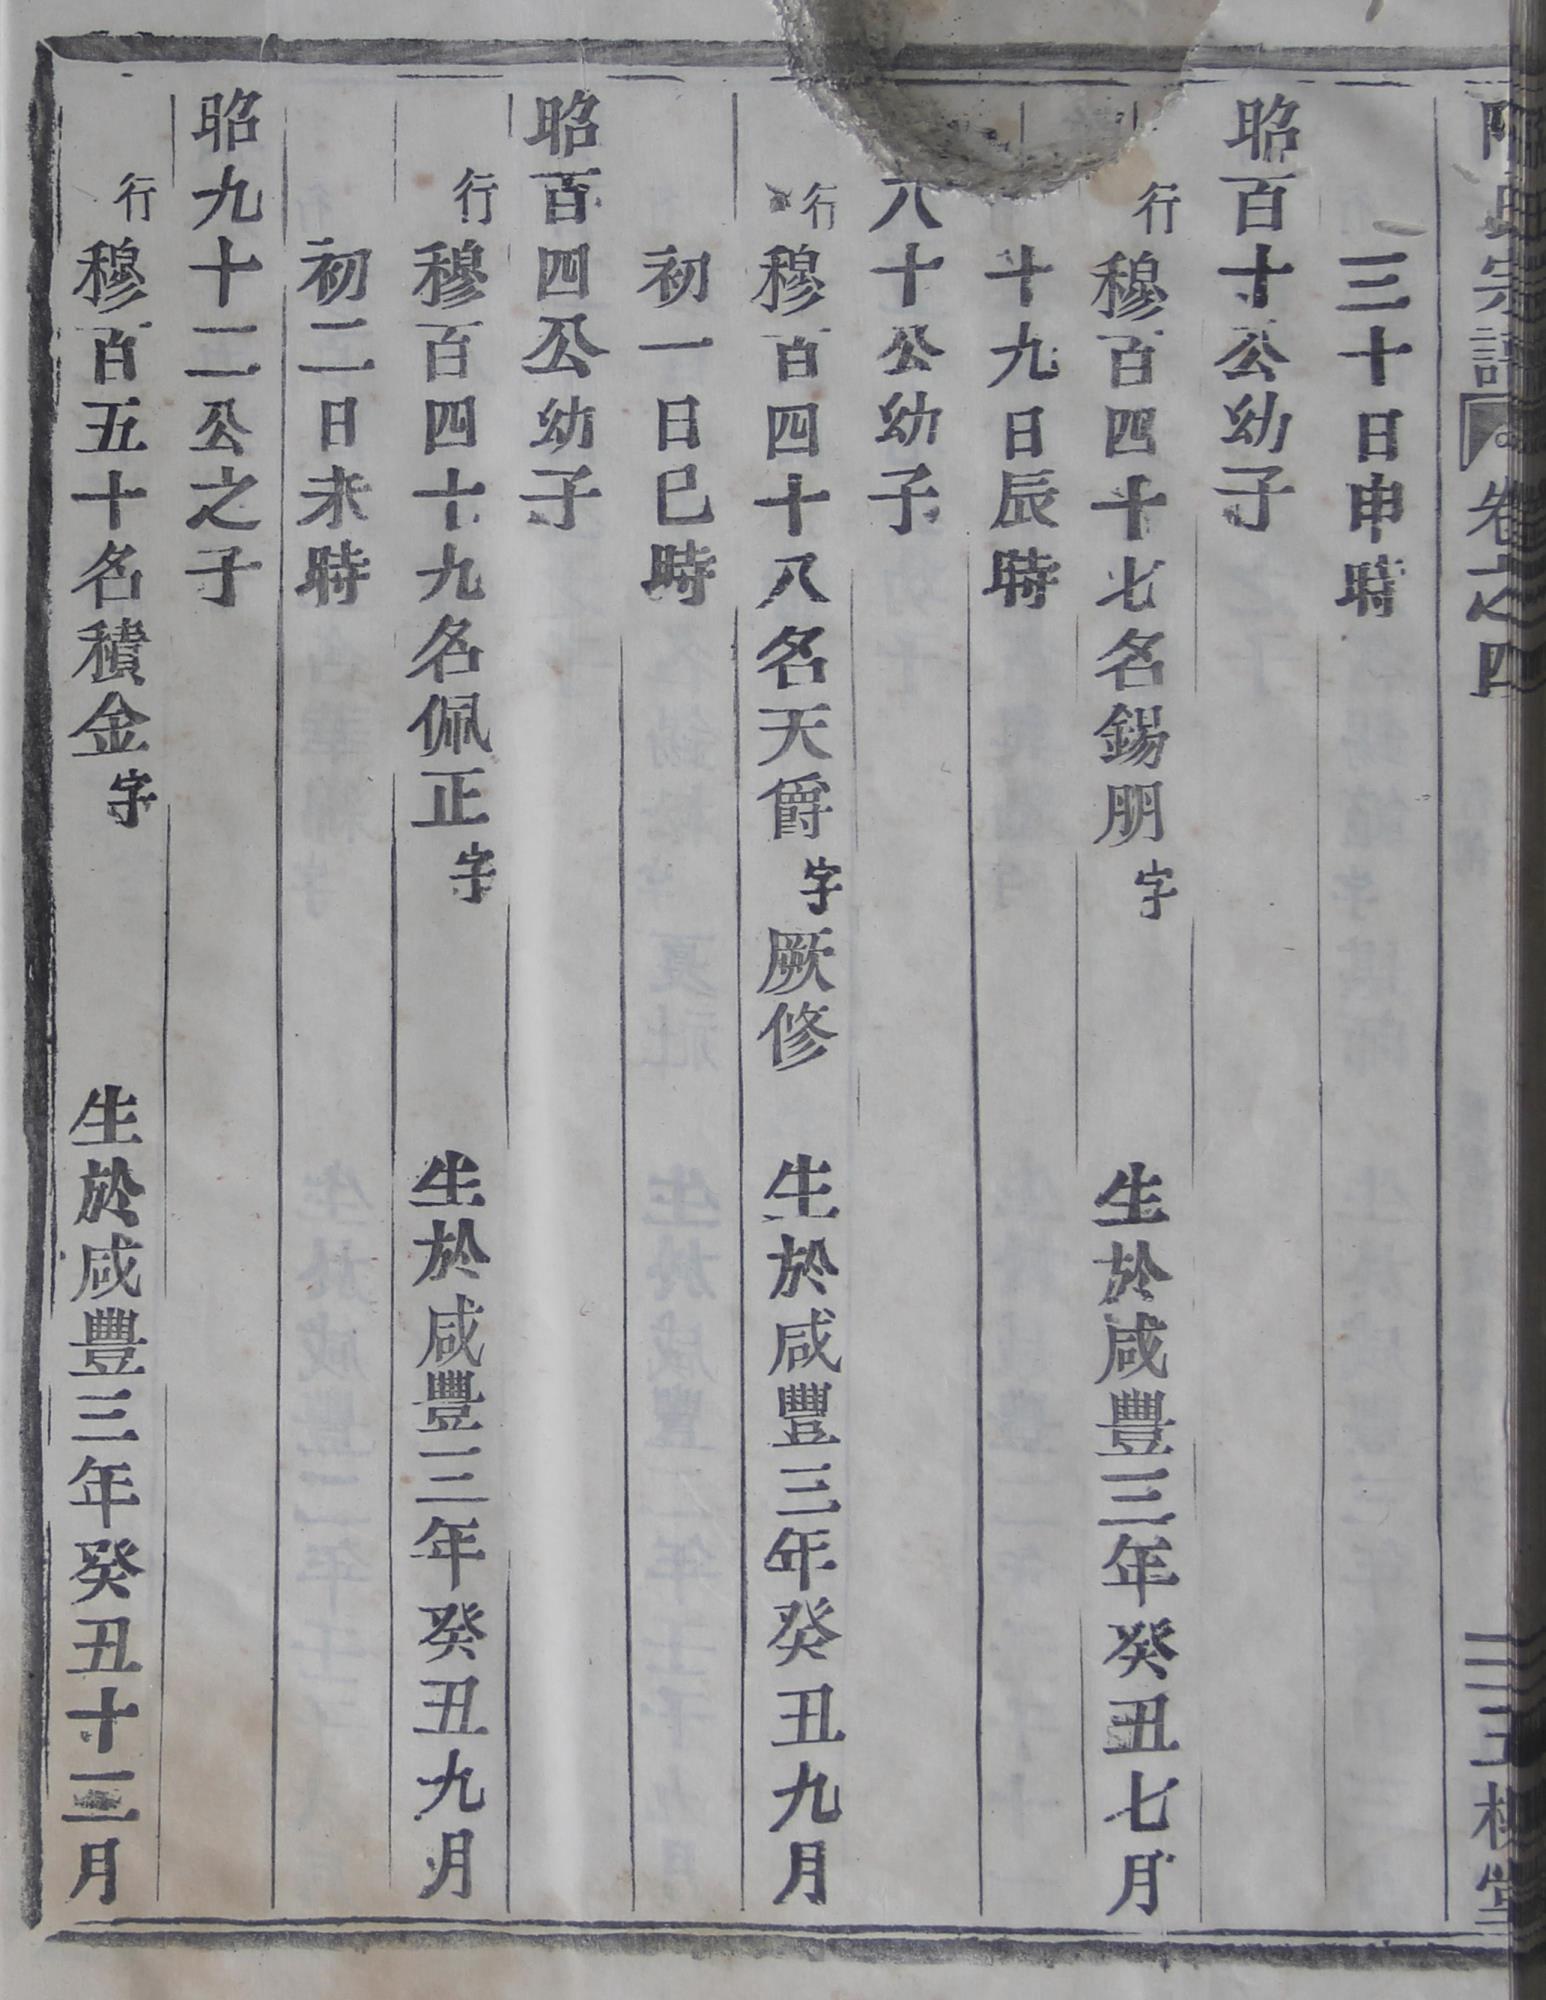 宗譜 卷之四 三槐堂
三十日申時
昭百十公幼子
行穆百四十七名錫朋字 生於咸豐三年癸丑七月
十九日辰時
八十公幼子
行穆百四十八名天爵字厥修 生於咸豐三年癸丑九月
初一日巳時
昭百四公幼子
行穆百四十九名佩正字 生於咸豐三年癸丑九月
初二日未時
昭九十二公之子
行穆百五十名積金字 生於咸豐三年癸丑十二月